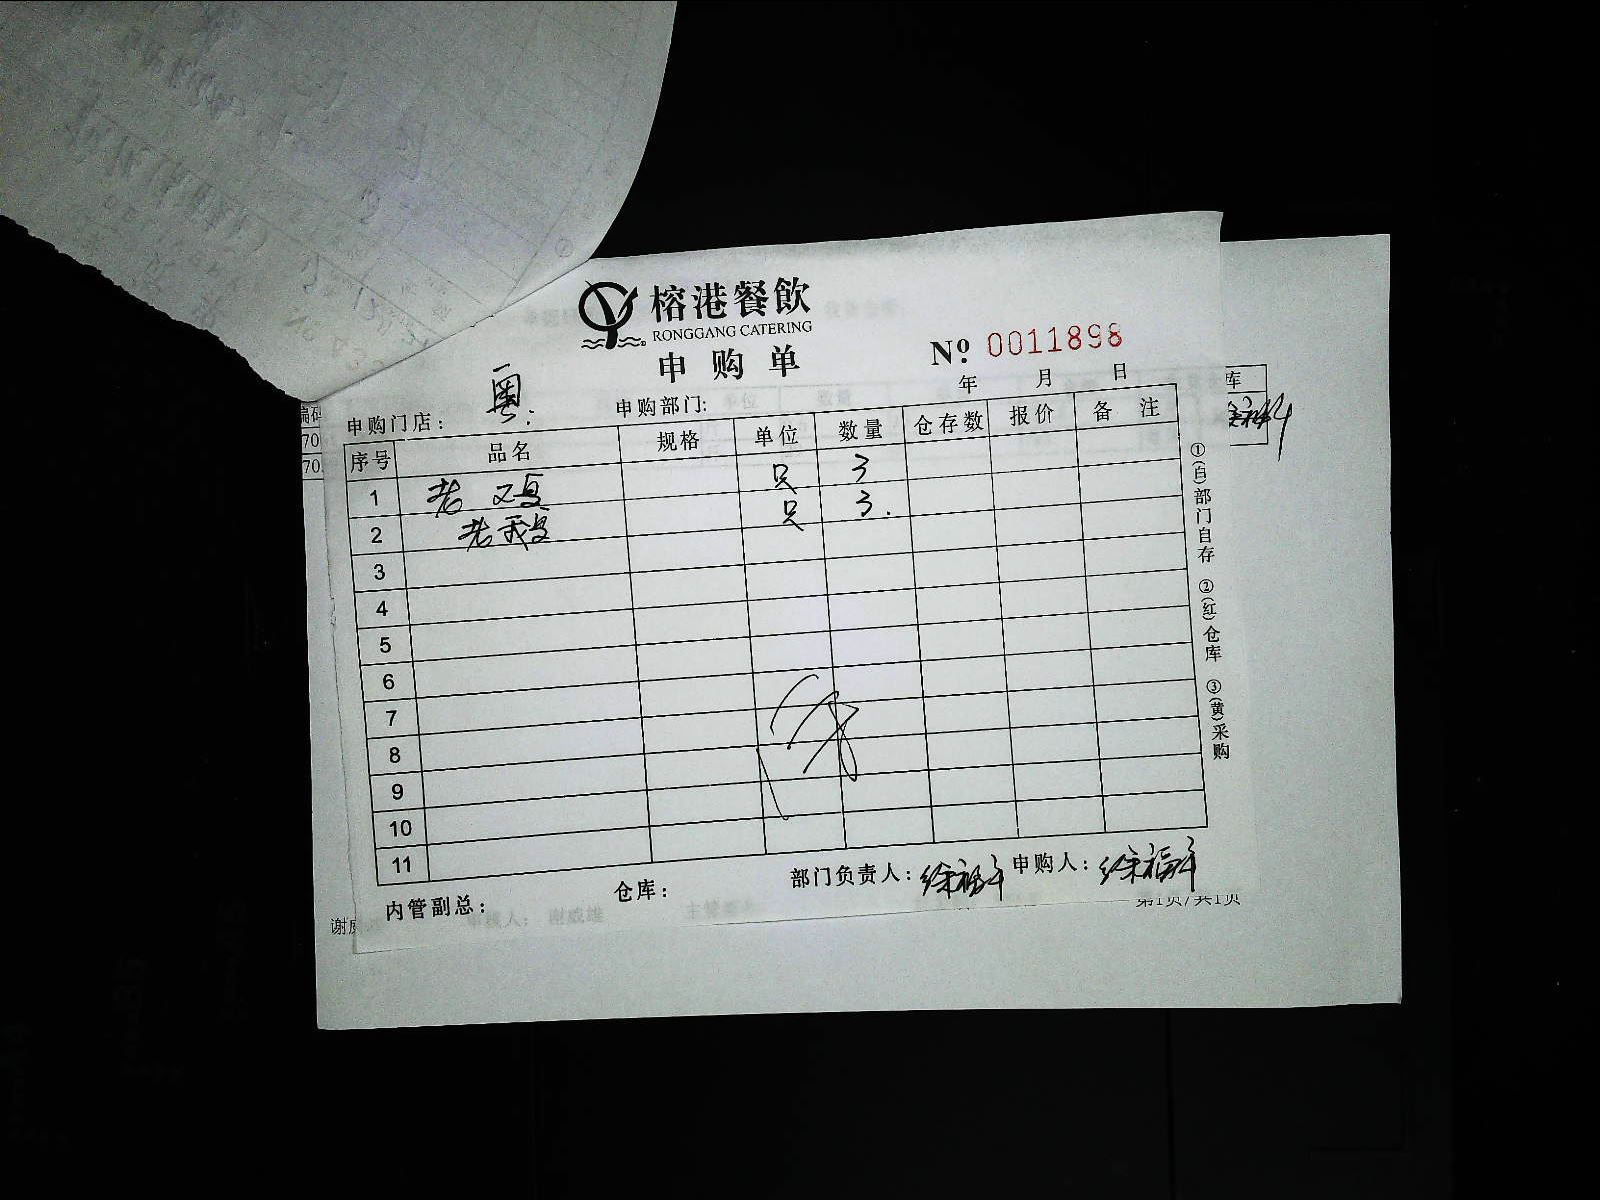 榕港餐飲
RONGGANG CATERING
申购单
№ 0011898
年 月 日
申购门店： 粤． 申购部门：
序号 品名 规格 单位 数量 仓存数 报价 备注
1 老鸡 只 3
2 老鹅 只 3．
3
4
5
6
7
8
9
10
11
内管副总： 仓库： 部门负责人：徐福平 申购人：徐福平
①(白)部门自存 ②(红)仓库 ③(黄)采购
编码
70
70
库
谢威
审核人： 谢威雄
第1页/共1页